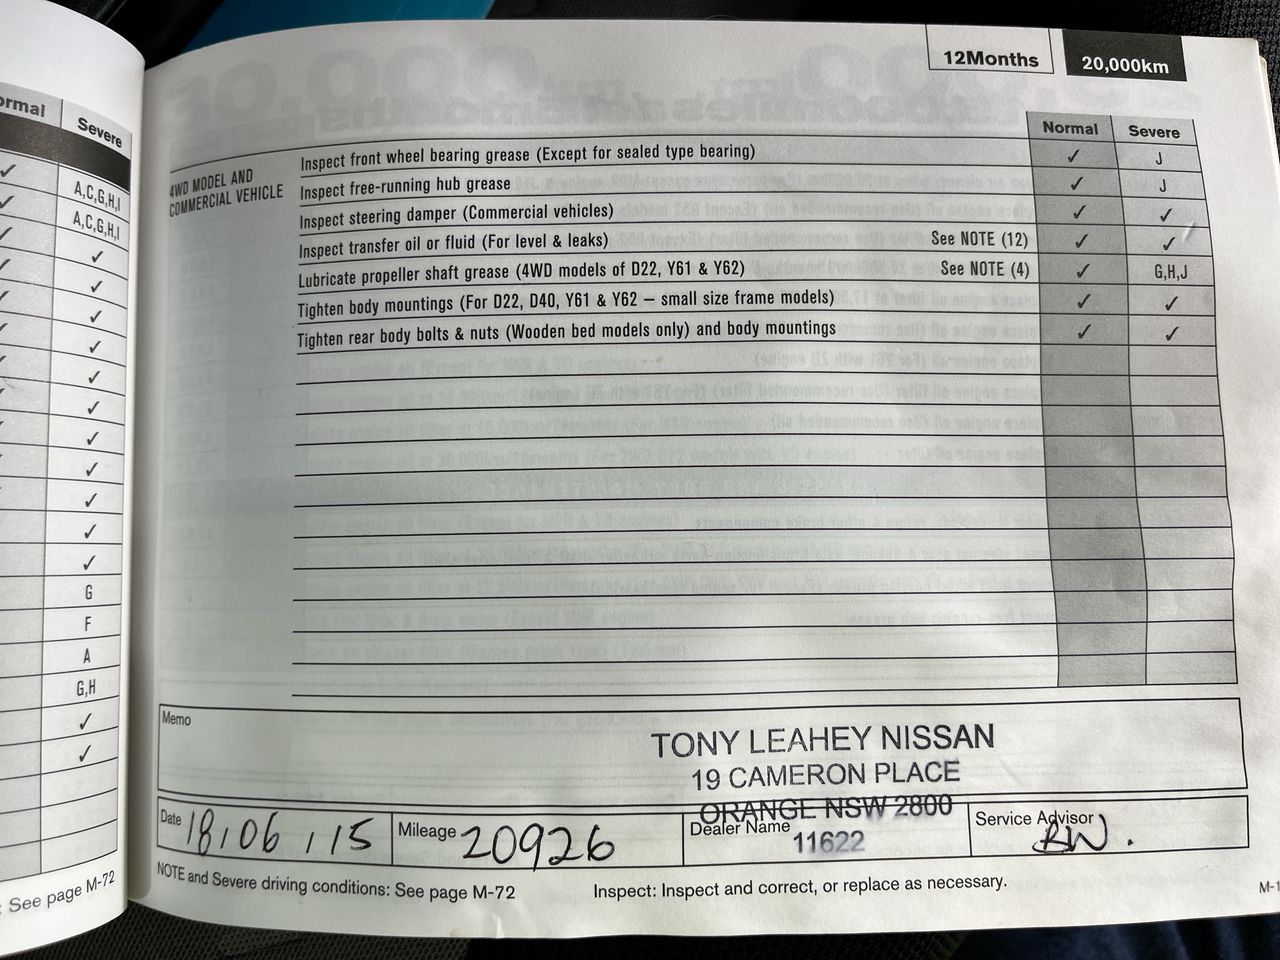 ormal Severe
✓ A,C,G,H,I
✓ A,C,G,H,I
✓ ✓
✓
✓
✓
✓
✓
✓
✓
✓
✓
✓
G
F
A
G,H
✓
✓
: See page M-72
12Months 20,000km
Normal Severe
4WD MODEL AND
COMMERCIAL VEHICLE
Inspect front wheel bearing grease (Except for sealed type bearing) ✓ J
Inspect free-running hub grease ✓ J
Inspect steering damper (Commercial vehicles) ✓ ✓
Inspect transfer oil or fluid (For level & leaks) See NOTE (12) ✓ ✓
Lubricate propeller shaft grease (4WD models of D22, Y61 & Y62) See NOTE (4) ✓ G,H,J
Tighten body mountings (For D22, D40, Y61 & Y62 – small size frame models) ✓ ✓
Tighten rear body bolts & nuts (Wooden bed models only) and body mountings ✓ ✓
Memo
TONY LEAHEY NISSAN
19 CAMERON PLACE
ORANGE NSW 2800
11622
Date 18/06/15 Mileage 20926 Dealer Name Service Advisor RW.
NOTE and Severe driving conditions: See page M-72 Inspect: Inspect and correct, or replace as necessary.
M-1